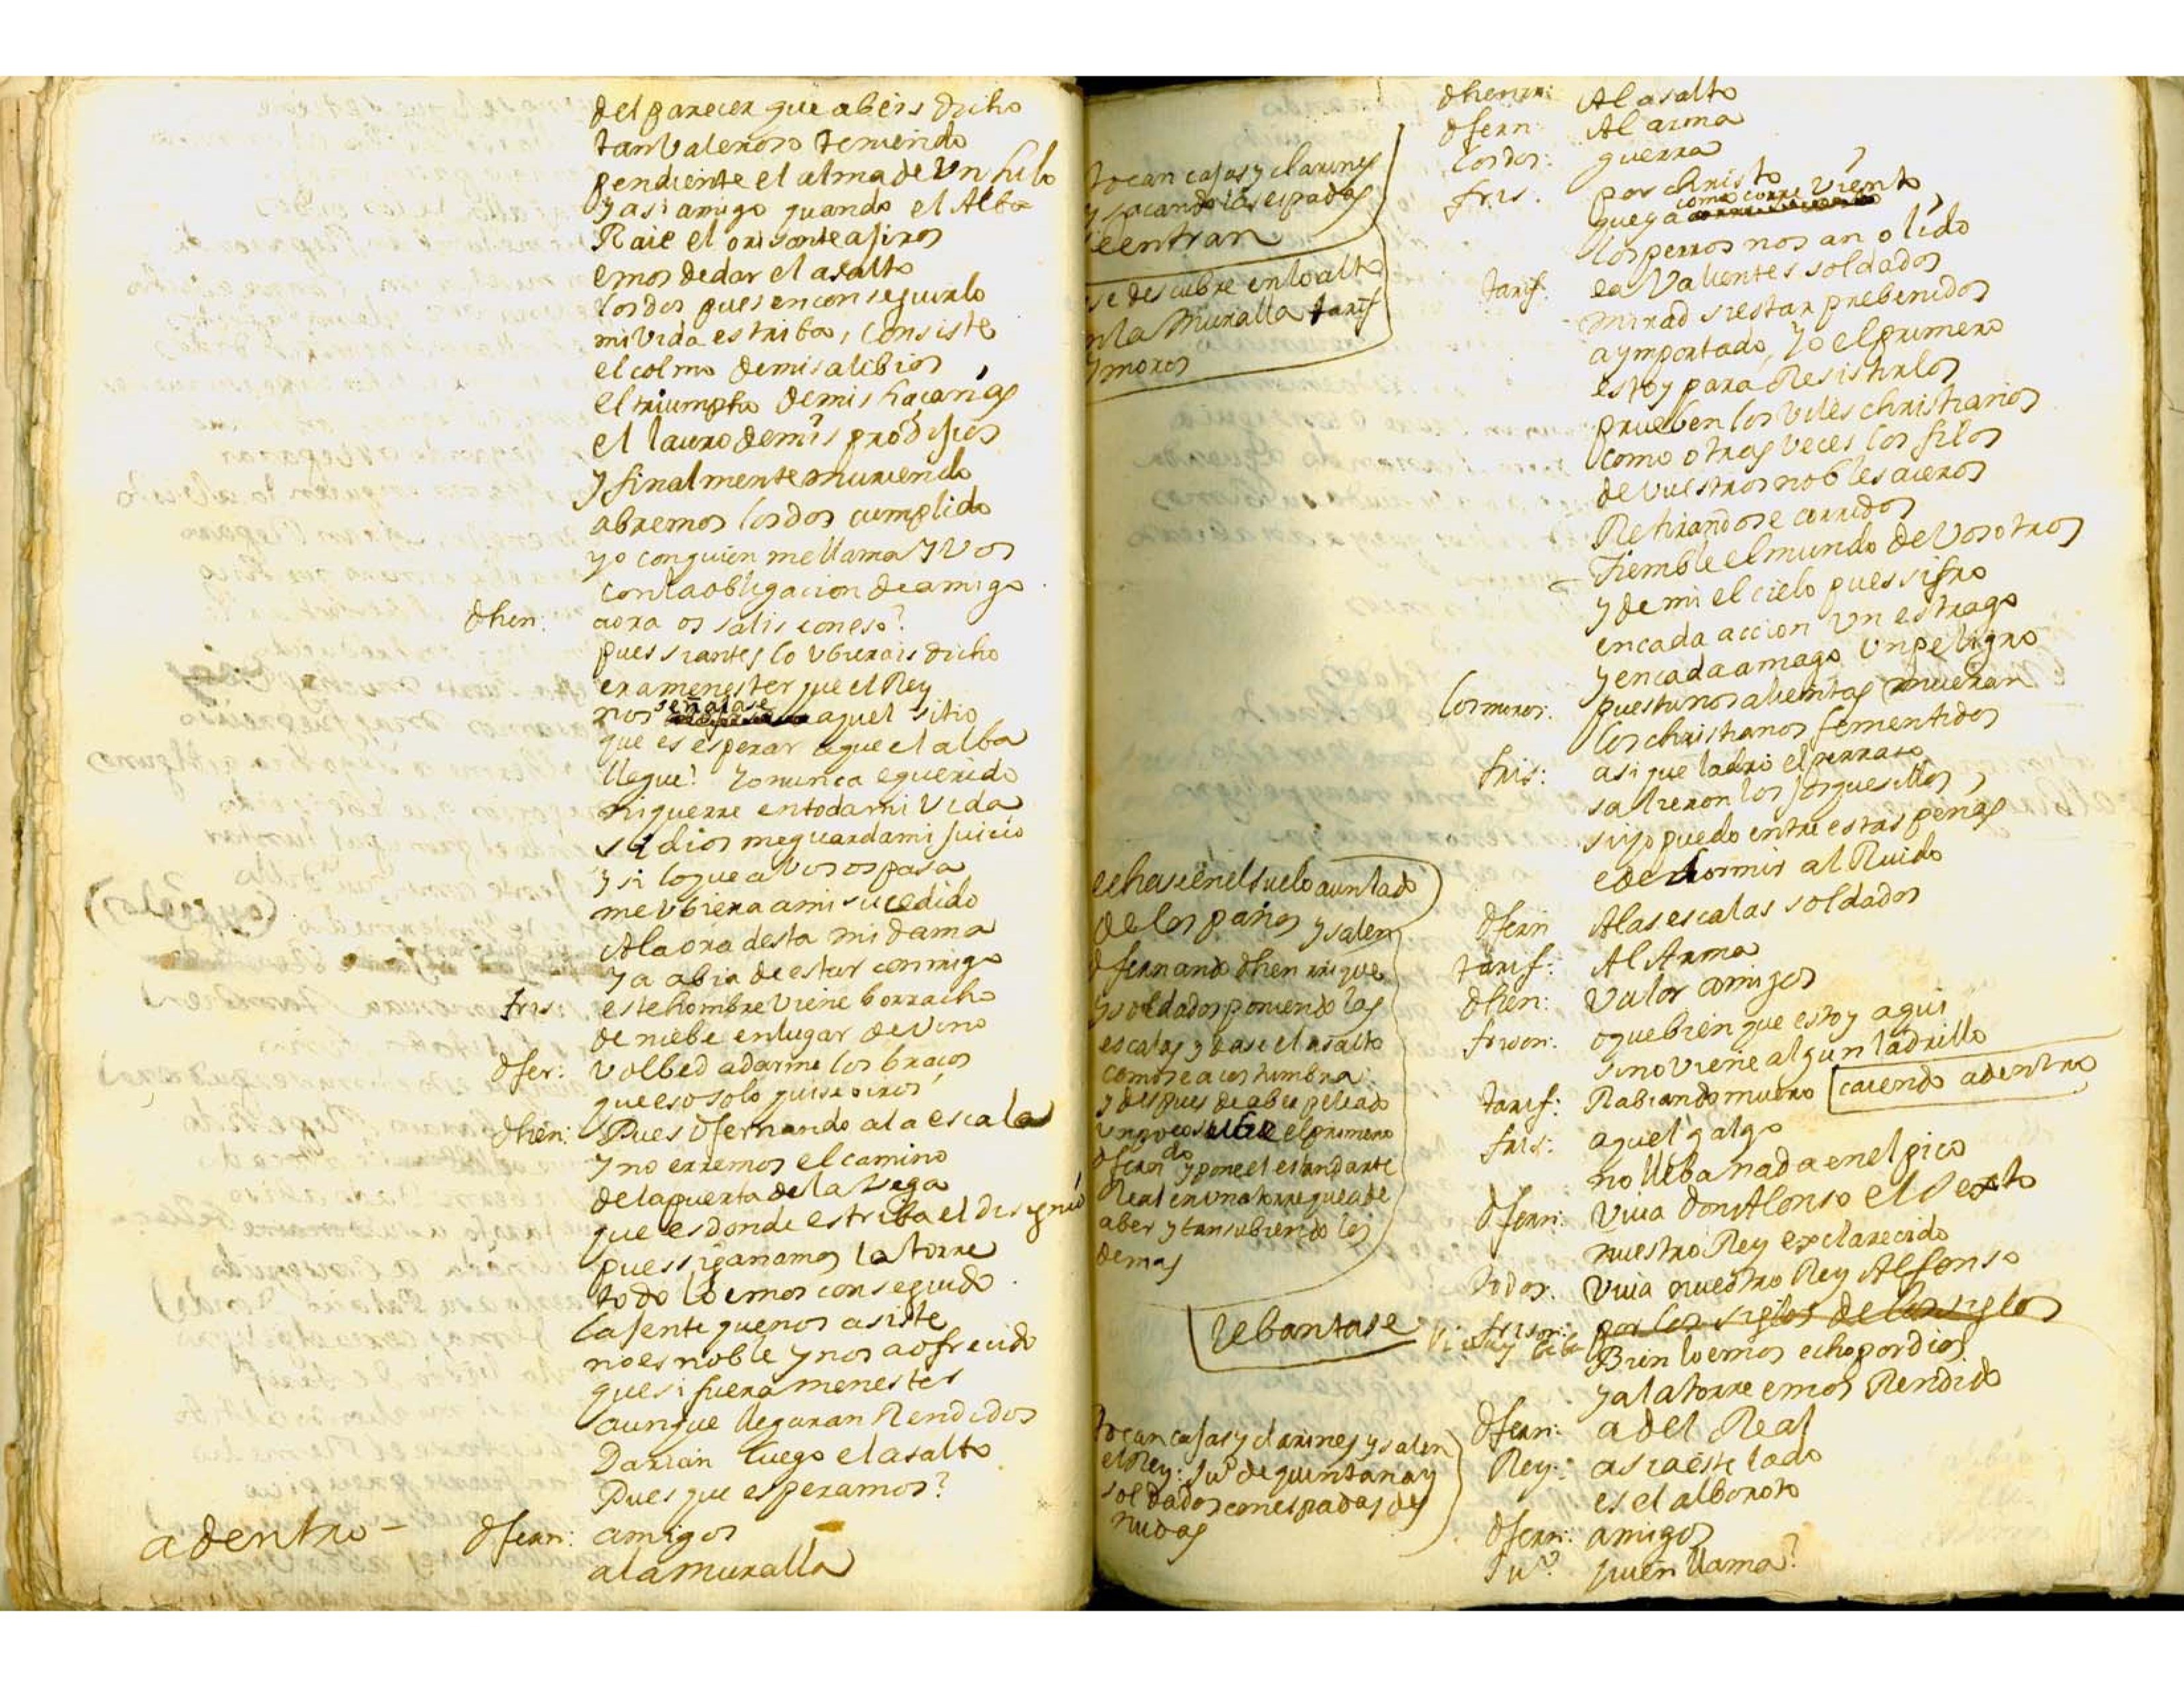 del parecer que abeis dicho
tan valeroso temiendo
pendiente el alma de Un hilo
y asi amigo quando el Alba
Raie el orisonte a jiros
emos de dar el asalto
los dos pues en conseguirlo
mi vida estriba, consiste
el colmo de mis alibios
el triumpho de mis haçañas
el lauro de mis prodijios
y finalmente muriendo
abremos los dos cumplido
yo con quien me llama y vos
con la obligacion de amigo
dhen: aora os salis con eso?
pues si antes lo ubierais dicho
era menester que el Rey
nos señalase aquel sitio
que es esperar a que el alba
llegue? yo nunca e querido
ni querre en toda mi vida
si dios me guarda mi juicio
y si lo que a vos os pasa
me ubiera a mi sucedido
A la ora desta mi dama
ya abia de estar conmigo
fris: este hombre viene borracho
de niebe en lugar de vino
dfer: volbed a darme los braços
que eso solo quise oiros
dhen: Pues dfernando a la escala
y no erremos el camino
de la puerta de la Vega
que es donde estriba el disignio
pues si ganamos la torre
todo lo emos conseguido
la jente que nos asiste
no es noble y nos a ofrecido
que si fuera menester
aunque llegaran Rendidos
Darian luego el asalto
Pues que esperamos?
adentro - dfern: amigos
a la muralla
dhenr: Al asalto
dfern: Al arma
los dos: guerra
tocan cajas y clarines
y sacando las espadas
se entran
fris: por christo
que ya como corre viento
los perros nos an olido
se descubre en lo alto
en la Muralla tarif
y moros
tarif: ea Valientes soldados
mirad si estar prebenidos
a ymportado, yo el primero
estoy para Resistirlos
prueben los viles christianos
como otras veces los filos
de vuestros nobles aceros
Retirandose corridos
Tiemble el mundo de vosotros
y de mi el cielo pues sifro
en cada accion un estrago
y en cada amago un peligro
los moros: pues tu nos alientas mueran
los christianos fementidos
fris: asi que ladro el perraço
salieron los josquesillos
si yo puedo entre estas peñas
e de dormir al Ruido
echase en el suelo a un lado
de los paños y salen
dfernando dhenrrique
y soldados poniendo las
escalas y dase el asalto
como se acostumbra
y despues de aber peleado
un poco sube el primero
dferndo y pone el estandarte
Real en una torre que a de
aber y ban subiendo los
demas
dfern A las escalas soldados
tarif: Al Arma
dhen: Valor amigos
frison: o que bien que estoy aqui
si no viene algun ladrillo
tarif: Rabiando muero caiendo adentro
fris: aquel galgo
no lleba nada en el pico
dfern: viva don Alonso el Sexto
nuestro Rey esclarecido
todos: viva nuestro Rey Alfonso
frison: por los siglos de los siglos
lebantase
Bien lo emos echo por dios
y a la torre emos Rendido
dfern: a del Real
tocan cajas y clarines y salen
el Rey: Juo de quintana y
soldados con espadas des
nudas
Rey: asia este lado
es el alboroto
dfern: amigos
Juo: quien llama?